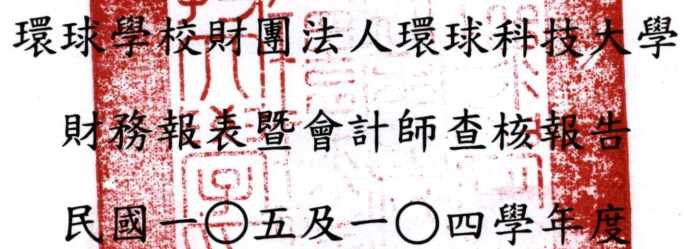 環球學校財團法人環球科技大學
財務報表暨會計師查核報告
民國一〇五及一〇四學年度